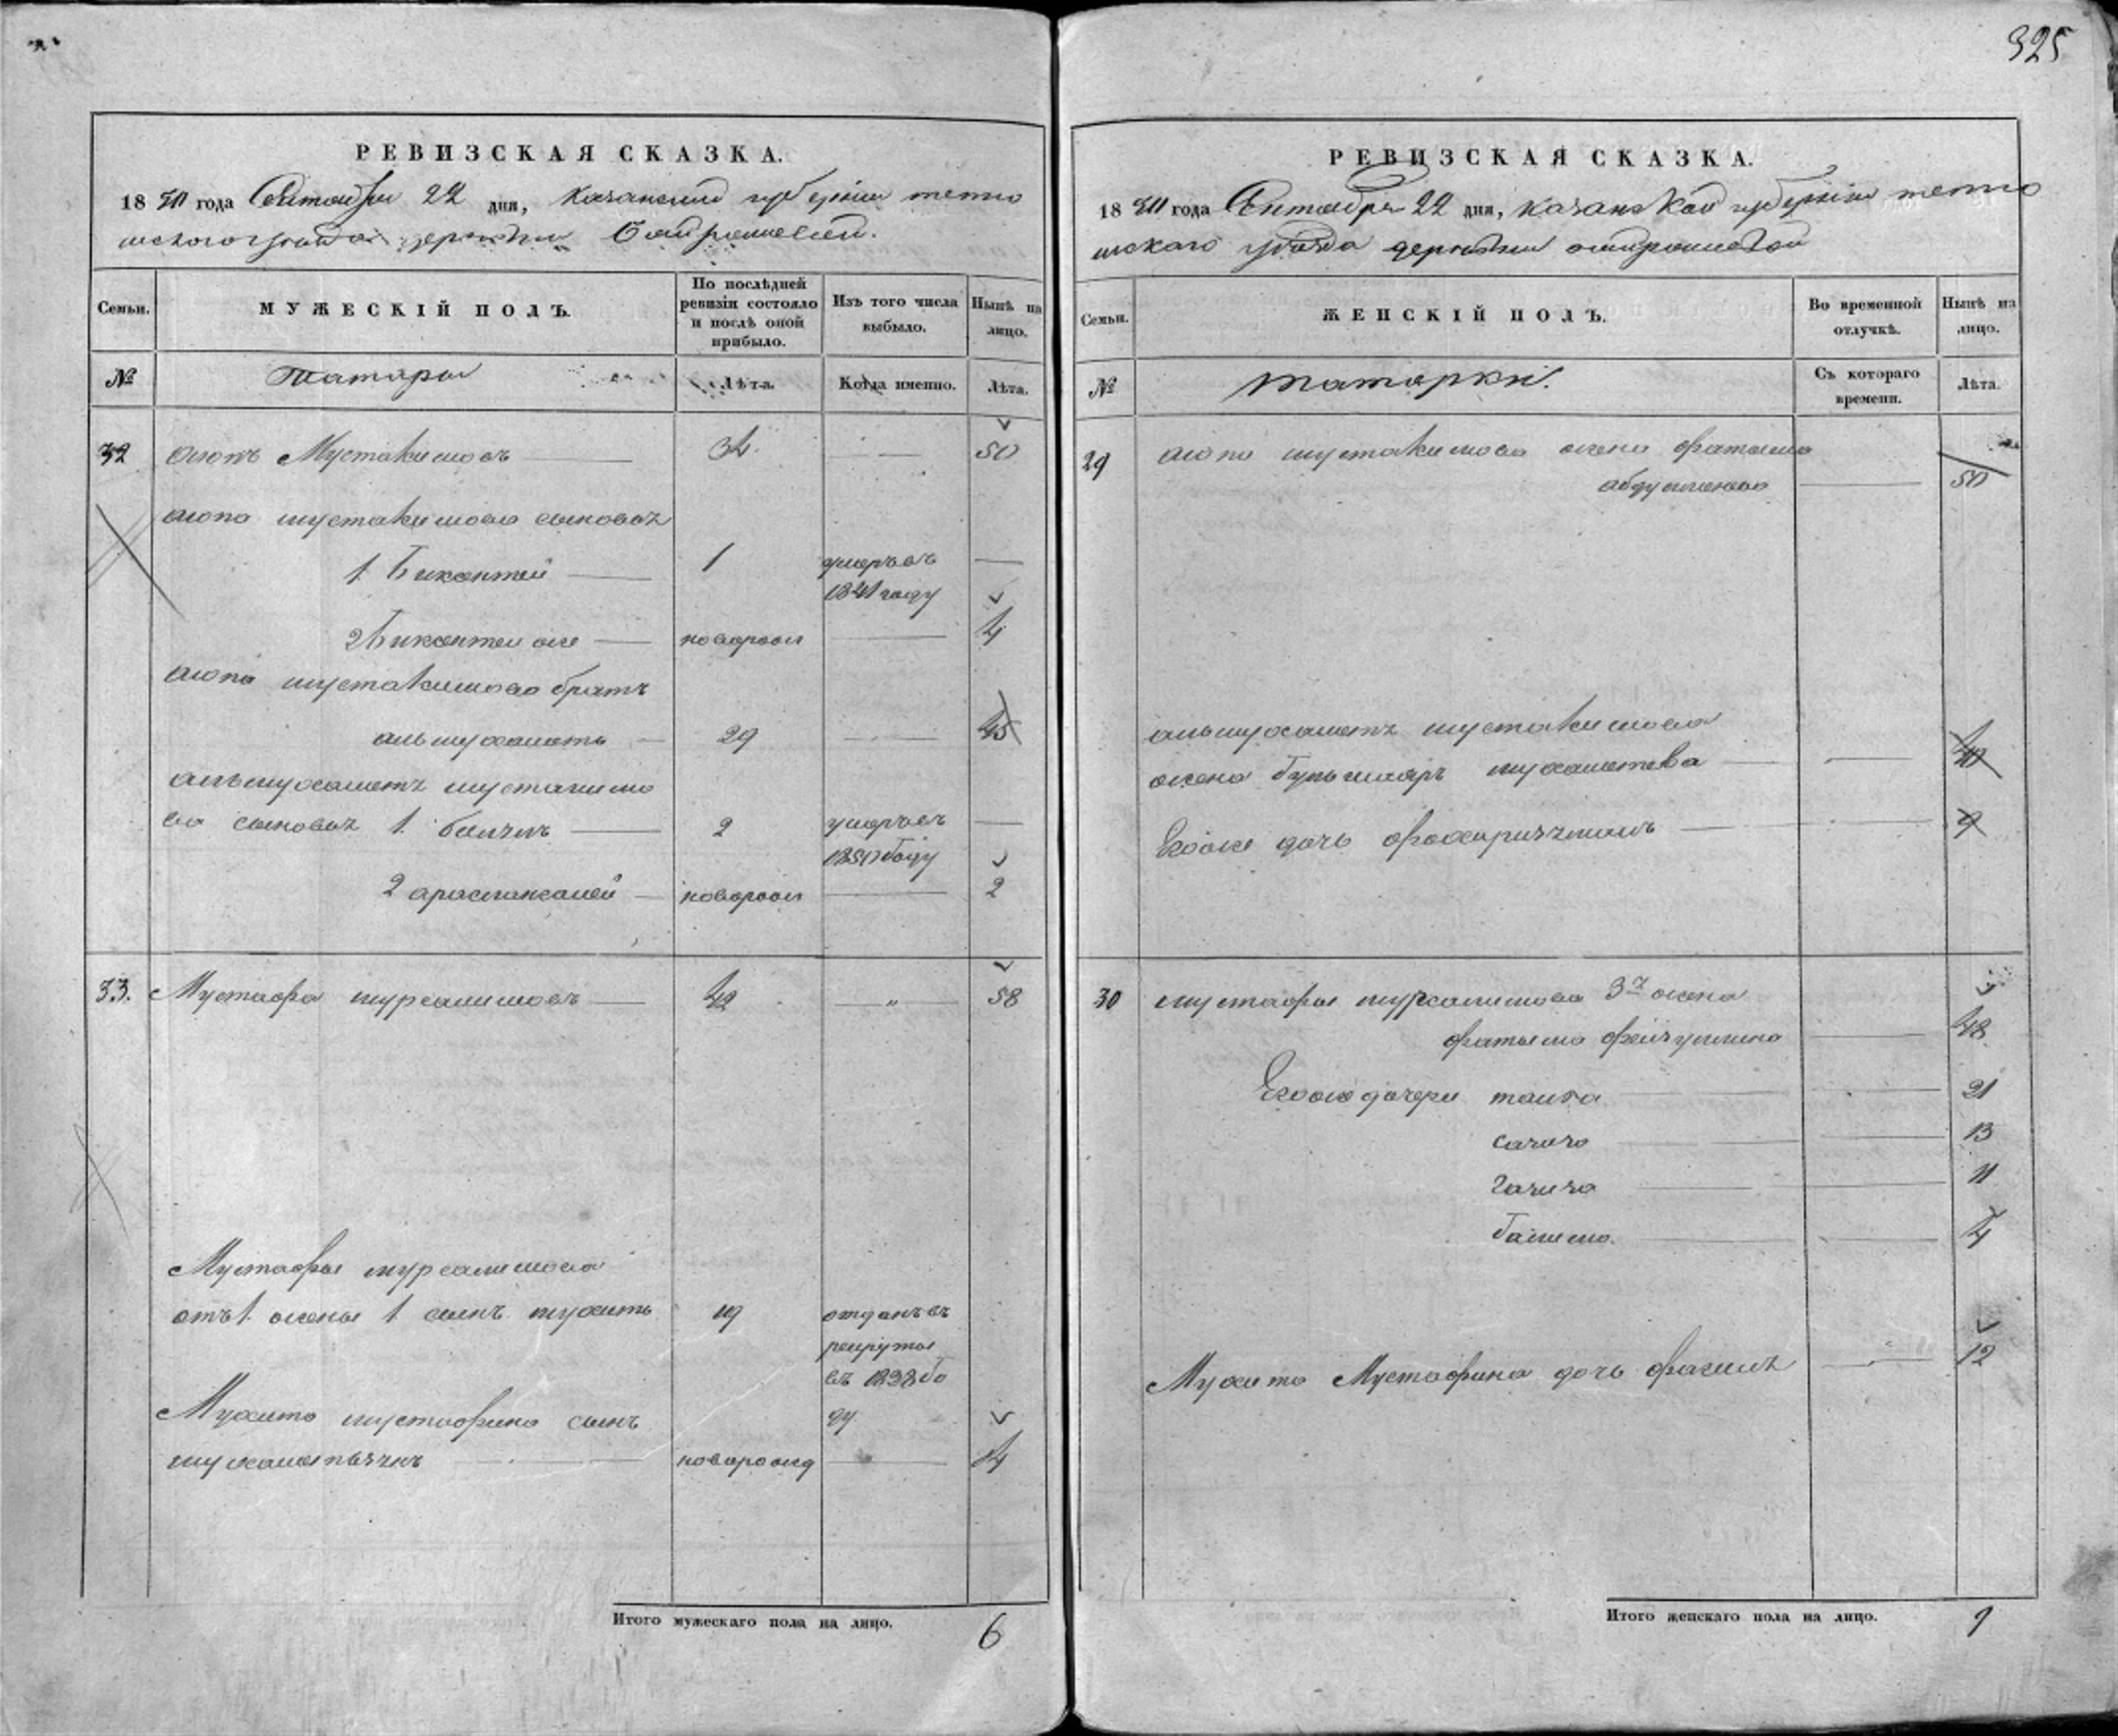 325
РЕВИЗСКАЯ СКАЗКА.
1850 года Октября 22 дня, казанской губернии тетю
шского уезда деревни
Семьи.
МУЖЕСКІЙ ПОЛЪ.
По послѣдней ревизіи состояло и послѣ оной прибыло.
Изъ того числа выбыло.
Нынѣ на лицо.
№
татары
Лѣта.
Когда именно.
Лѣта.
32 аюпъ Мустакимовъ 34 50
аюпа мустакимова сыновья
1. Бикантей 1 умеръ въ
1841 году
2 Бикантей же новорож 4
аюпа мустакимова братъ
альмухаметь 29 45
альмухаметя мустакимо
ва сыновья 1. 2 умеръ въ
1850 году
2 араслангалей новорож 2
33. Мустафа мурсалимовъ 42 „ 58
Мустафы мурсалимова
отъ 1. жены 1 сынъ мухитъ 19 отданъ въ
рекруты
въ 1838 го
ду
Мухита мустафина сынъ
новорожд 14
Итого мужескаго пола на лицо. 6
РЕВИЗСКАЯ СКАЗКА.
1850 года Октября 22 дня, казанской губернии тетю
шскаго уѣзда деревни
Семьи.
ЖЕНСКІЙ ПОЛЪ.
Во временной отлучкѣ.
Нынѣ на лицо.
№
татарки.
Съ котораго времени.
Лѣта.
29 аюпа мустакимова жена фатыма
50
альмухаметя мустакимова
жена мухаметева 40
Егоже дочь 9
30 мустафы мурсалимова 3я жена
фатыма фейзуллина 48
Егоже дочери таиба 21
сазиза 13
газиза 11
галима. 4
Мухита Мустафина дочь 12
Итого женскаго пола на лицо. 9